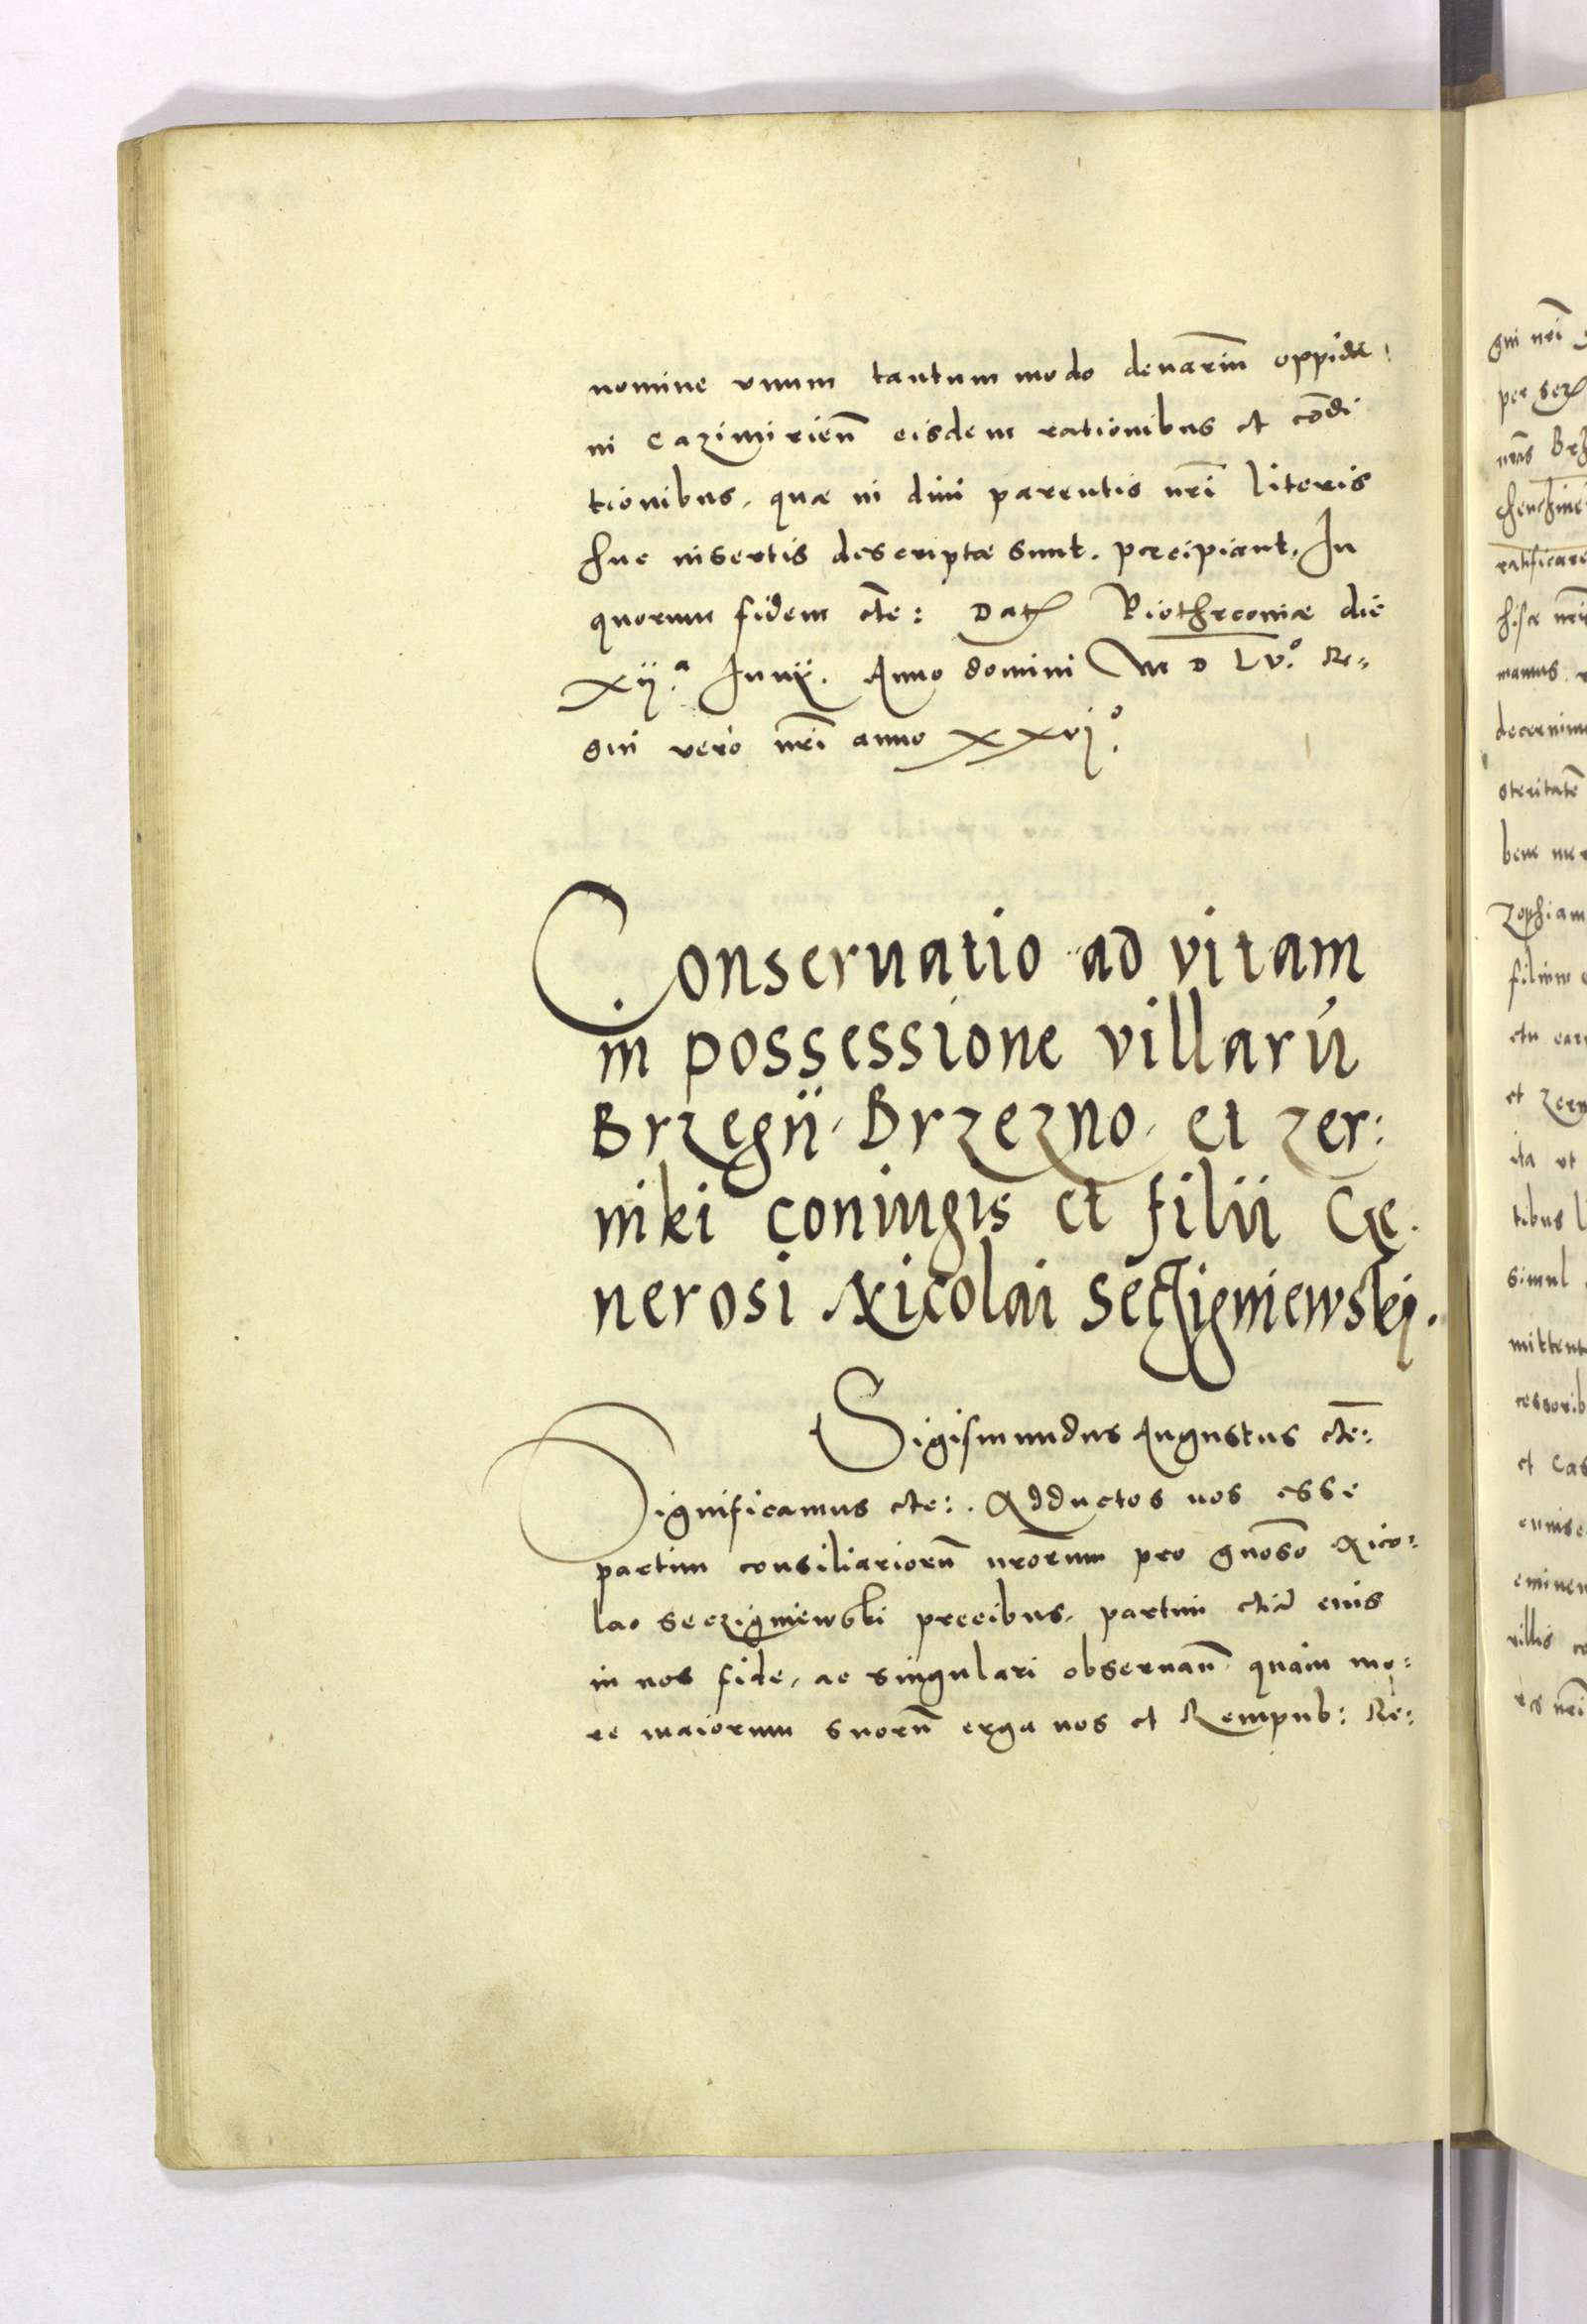 nomine vnum tantum modo denariũ oppida
ni Cazimirień eisdem rationibus et cõdi
tionibus, quæ in diui parentis nr̃i literis
huc insertis descriptæ sunt, percipiant. In
quorum fidem etc̃: Dat Piothrcouiæ die
Xij.ª Junij. Anno domini M D Lv.º Re-
gni vero nr̃i anno XXvj.º
Conseruatio ad vitam
in possessione villarũ
Brzegij, Brzezno, et Zer:
niki coniugis et filii Ge.
nerosi Nicolai Seczigniewskj.
Sigismundus Augustus etc̃:
Significamus etc: Adductos nos esse
partim consiliariorũ nr̃orum pro gnoso Nico:
lao Seczigniewski precibus, partim etiã eius
in nos fide, ac singulari obseruań, quam mo:
re maiorum suorũ erga nos et Rempub: Re:
gni nr̃i
per
nr̃as
ratificare
manus
decernimu
steritatẽ
bene mer
Zophiam
filium
et Zern
ita vt
tibus l
simul
mittent
cessorib
et Cas
eminen
villis